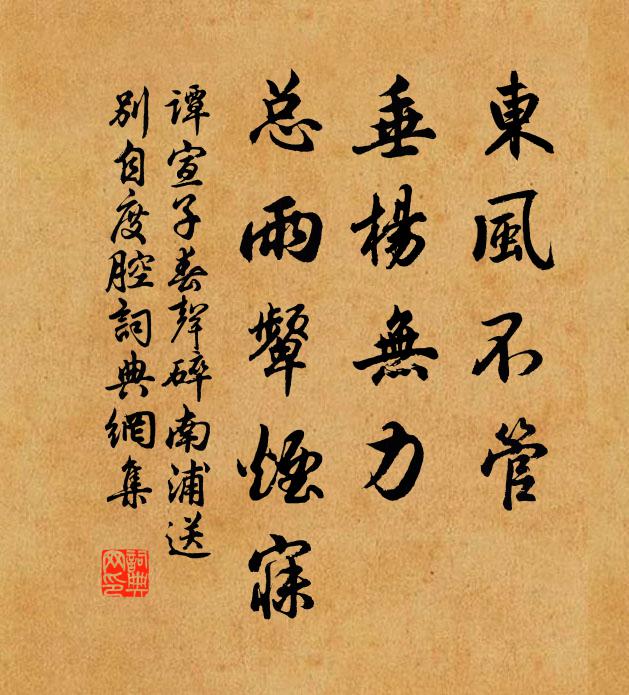 東風不管
垂楊無力
总雨顰煙寐
譚宣子春聲碎南浦送
别自度腔詞典網集
詞典网印